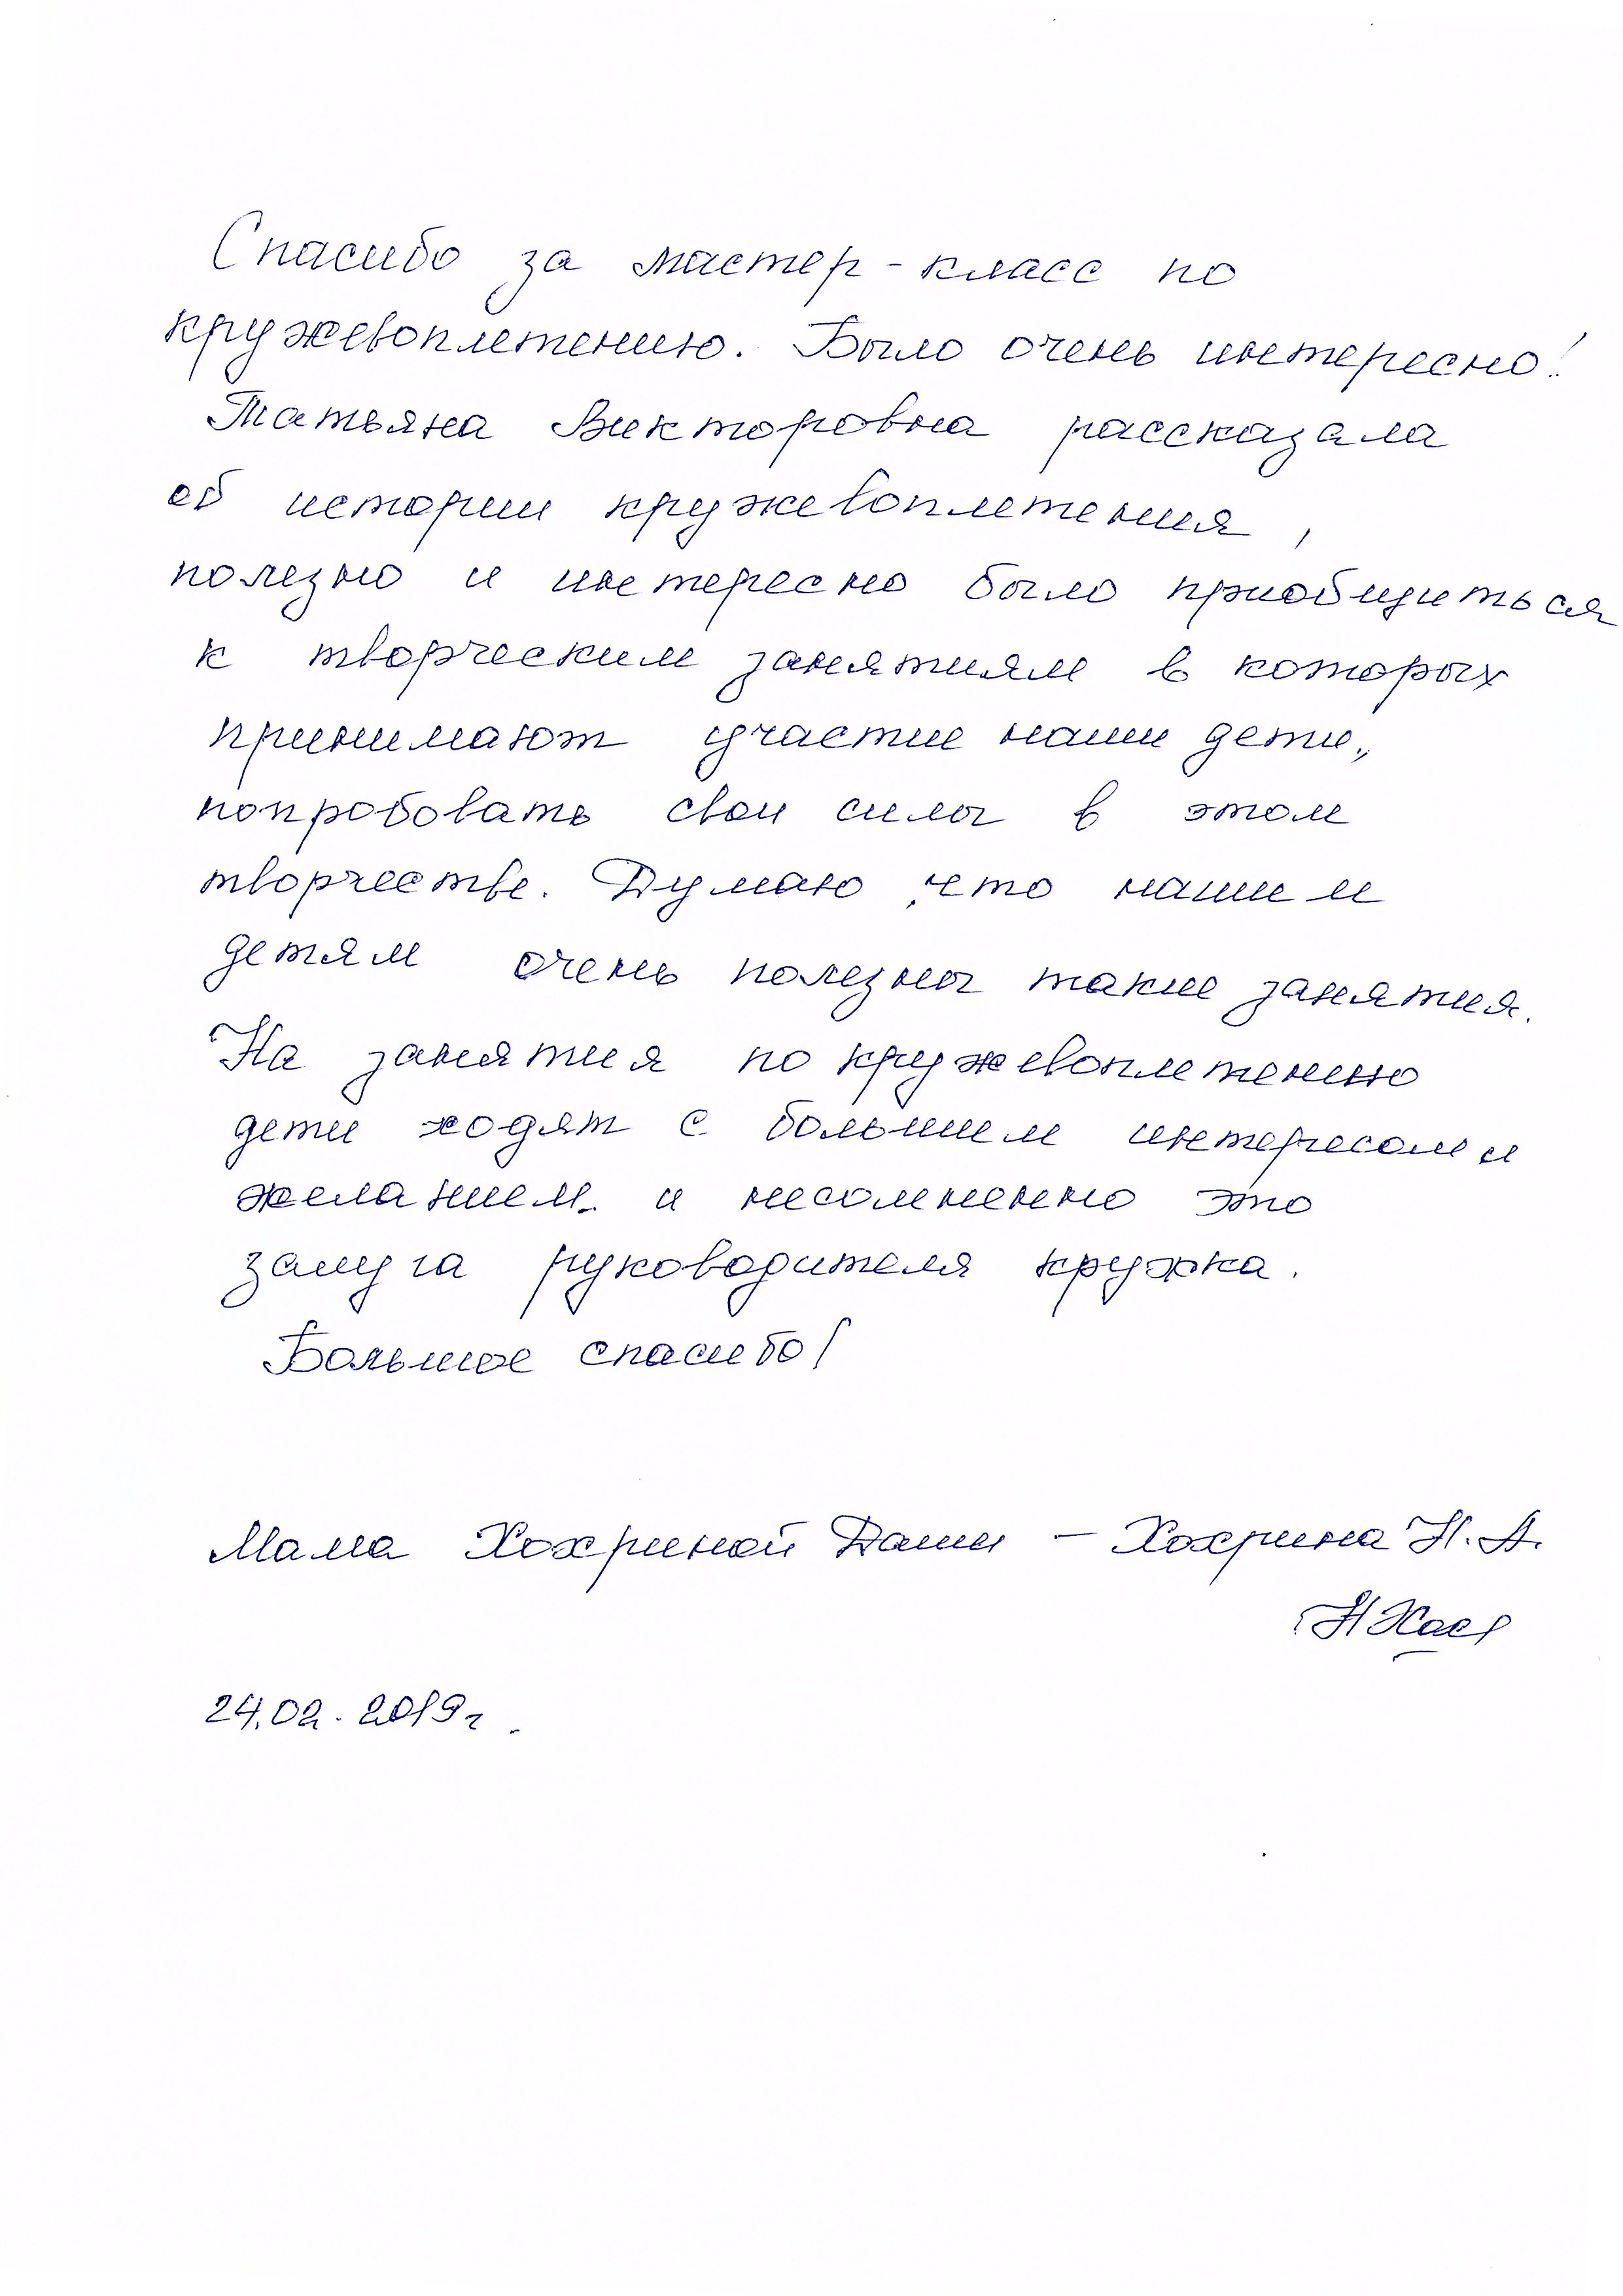 Спасибо за мастер-класс по
кружевоплетению. Было очень интересно!
Татьяна Викторовна рассказала
об истории кружевоплетения,
полезно и интересно было приобщиться
к творческим занятиям в которых
принимают участие наши дети,
попробовать свои силы в этом
творчестве. Думаю, что нашим
детям очень полезны такие занятия.
На занятия по кружевоплетению
дети ходят с большим интересом и
желанием. и несомненно это
заслуга руководителя кружка.
Большое спасибо!
Мама Хохриной Даши – Хохрина Н.А.
24.02.2019г.